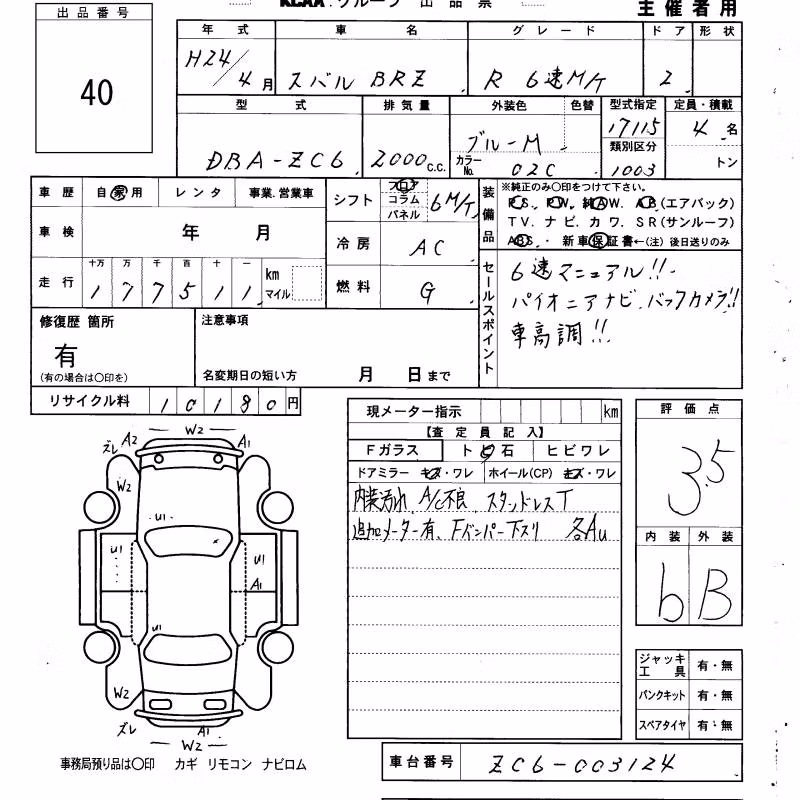 KCAA グループ 出品票
主催者用
出品番号
40
年式 車名 グレード ドア 形状
H24/4月 スバル BRZ R 6速M/T 2
型式 排気量 外装色 色替 型式指定 定員・積載
DBA-ZC6 2000 c.c. ブルーM 17115 4名
カラーNo. 02C 類別区分 1003 トン
車歴 自家用 レンタ 事業.営業車
車検 年 月
走行 十万 万 千 百 十 一 km マイル
177511
シフト フロア コラム パネル 6M/T
冷房 AC
燃料 G
装備品
※純正のみ〇印をつけて下さい。
P.S, P.W, 純AW, A.B(エアバック)
TV. ナビ. カワ. SR(サンルーフ)
ABS. ・ 新車保証書←(注) 後日送りのみ
セールスポイント
6速マニュアル!!
パイオニアナビ.バックカメラ!!
車高調!!
修復歴 箇所
有
(有の場合は〇印を)
注意事項
名変期日の短い方 月 日まで
リサイクル料 10180円
現メーター指示 km
【査定員記入】
Fガラス トビ石 ヒビワレ
ドアミラー キズ・ワレ ホイール(CP) キズ・ワレ
内装汚れ A/C不良 スタッドレスT
追加メーター有、Fバンパー下スリ 各Au
評価点
3.5
内装 外装
b B
ジャッキ工具 有・無
パンクキット 有・無
スペアタイヤ 有・無
W2
ズレ A2 A1
W2
U1
U1 U1
A1
U1
W2 W2
ズレ A1
W2
事務局預り品は〇印 カギ リモコン ナビロム
車台番号 ZC6-003124